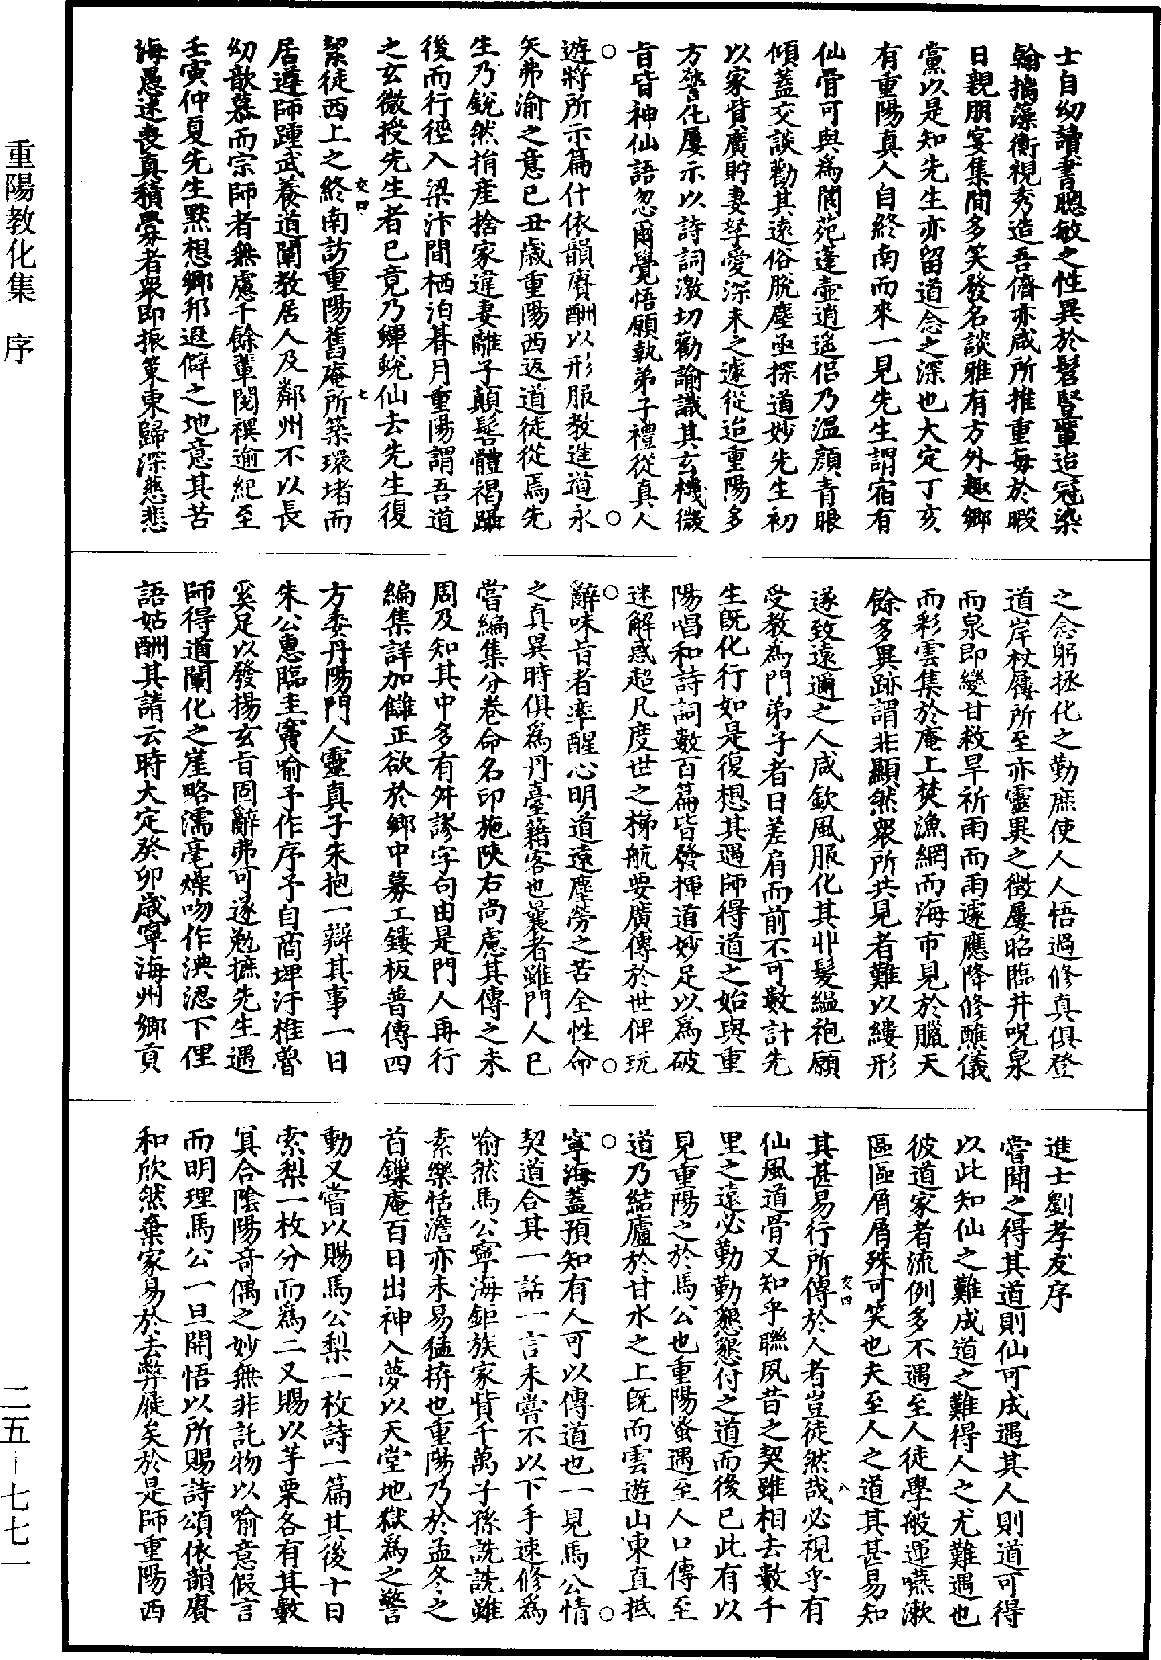 重陽教化集　序
二五—七七一
士自幼讀書聰敏之性異於髫豎輩迨冠染
翰摛藻衡視秀造吾儕亦咸所推重每於暇
日親朋宴集間多笑發名談雅有方外趣鄉
黨以是知先生亦留道念之深也大定丁亥
有重陽真人自終南而來一見先生謂宿有
仙骨可與為閬苑蓬壺逍遙侶乃溫顏青眼
傾蓋交談勸其遠俗脫塵亟探道妙先生初
以家貲廣貯妻孥愛深未之遽從迨重陽多
方警化屢示以詩詞激切勸諭識其玄機微
旨皆神仙語忽爾覺悟願執弟子禮從真人
遊將所示篇什依韻賡酬以形服教進道永
矢弗渝之意已丑歲重陽西返道徒從焉先
生乃銳然捐產捨家違妻離子顛髻體褐躡
後而行徑入梁汴間栖泊朞月重陽謂吾道
之玄微授先生者已竟乃蟬蛻仙去先生復
絜徒西上之終南訪重陽舊庵所築環堵而
交四　七
居遵師踵武養道闡教居人及鄰州不以長
幼歆慕而宗師者無慮千餘輩閱禩逾紀至
壬寅仲夏先生默想鄉邦遐僻之地意其苦
海愚迷喪真積釁者衆即振策東歸深慈悲
之念躬拯化之勤庶使人人悟過修真俱登
道岸杖屨所至亦靈異之徵屢昭臨井呪泉
而泉即變甘救旱祈雨而雨遽應降修醮儀
而彩雲集於庵上焚漁網而海市見於臘天
餘多異跡謂非顯然衆所共見者難以縷形
遂致遠邇之人咸欽風服化其丱髮緼袍願
受教為門弟子者日差肩而前不可數計先
生旣化行如是復想其遇師得道之始與重
陽唱和詩詞數百篇皆發揮道妙足以為破
迷解惑超凡度世之梯航要廣傳於世俾玩
辭味旨者率醒心明道遠塵勞之苦全性命
之真異時俱為丹臺籍客也曩者雖門人已
嘗編集分卷命名印施陝右尚慮其傳之未
周及知其中多有舛謬字句由是門人再行
編集詳加讎正欲於鄉中募工鏤板普傳四
方委丹陽門人靈真子朱抱一辯其事一日
朱公惠臨圭竇喻予作序予自商埋汙椎魯
奚足以發揚玄旨固辭弗可遂勉摭先生遇
師得道闡化之崖略濡毫燥吻作淟涊下俚
語姑酬其請云時大定癸卯歲寧海州鄉貢
進士劉孝友序
嘗聞之得其道則仙可成遇其人則道可得
以此知仙之難成道之難得人之尤難遇也
彼道家者流例多不遇至人徒學般運嚥漱
區區屑屑殊可笑也夫至人之道其甚易知
其甚易行所傳於人者豈徒然哉必視乎有
交四　八
仙風道骨又知乎聯夙昔之契雖相去數千
里之遠必勤勤懇懇付之道而後已此有以
見重陽之於馬公也重陽蚤遇至人口傳至
道乃結廬於甘水之上旣而雲遊山東直抵
寧海蓋預知有人可以傳道也一見馬公情
契道合其一話一言未嘗不以下手速修為
喻然馬公寧海鉅族家貲千萬子孫詵詵雖
素樂恬澹亦未易猛捹也重陽乃於孟冬之
首鏁庵百日出神入夢以天堂地獄為之警
動又嘗以賜馬公梨一枚詩一篇其後十日
索梨一枚分而為二又賜以芋栗各有其數
冥合陰陽奇偶之妙無非託物以喻意假言
而明理馬公一旦開悟以所賜詩頌依韻賡
和欣然棄家易於去弊屣矣於是師重陽西